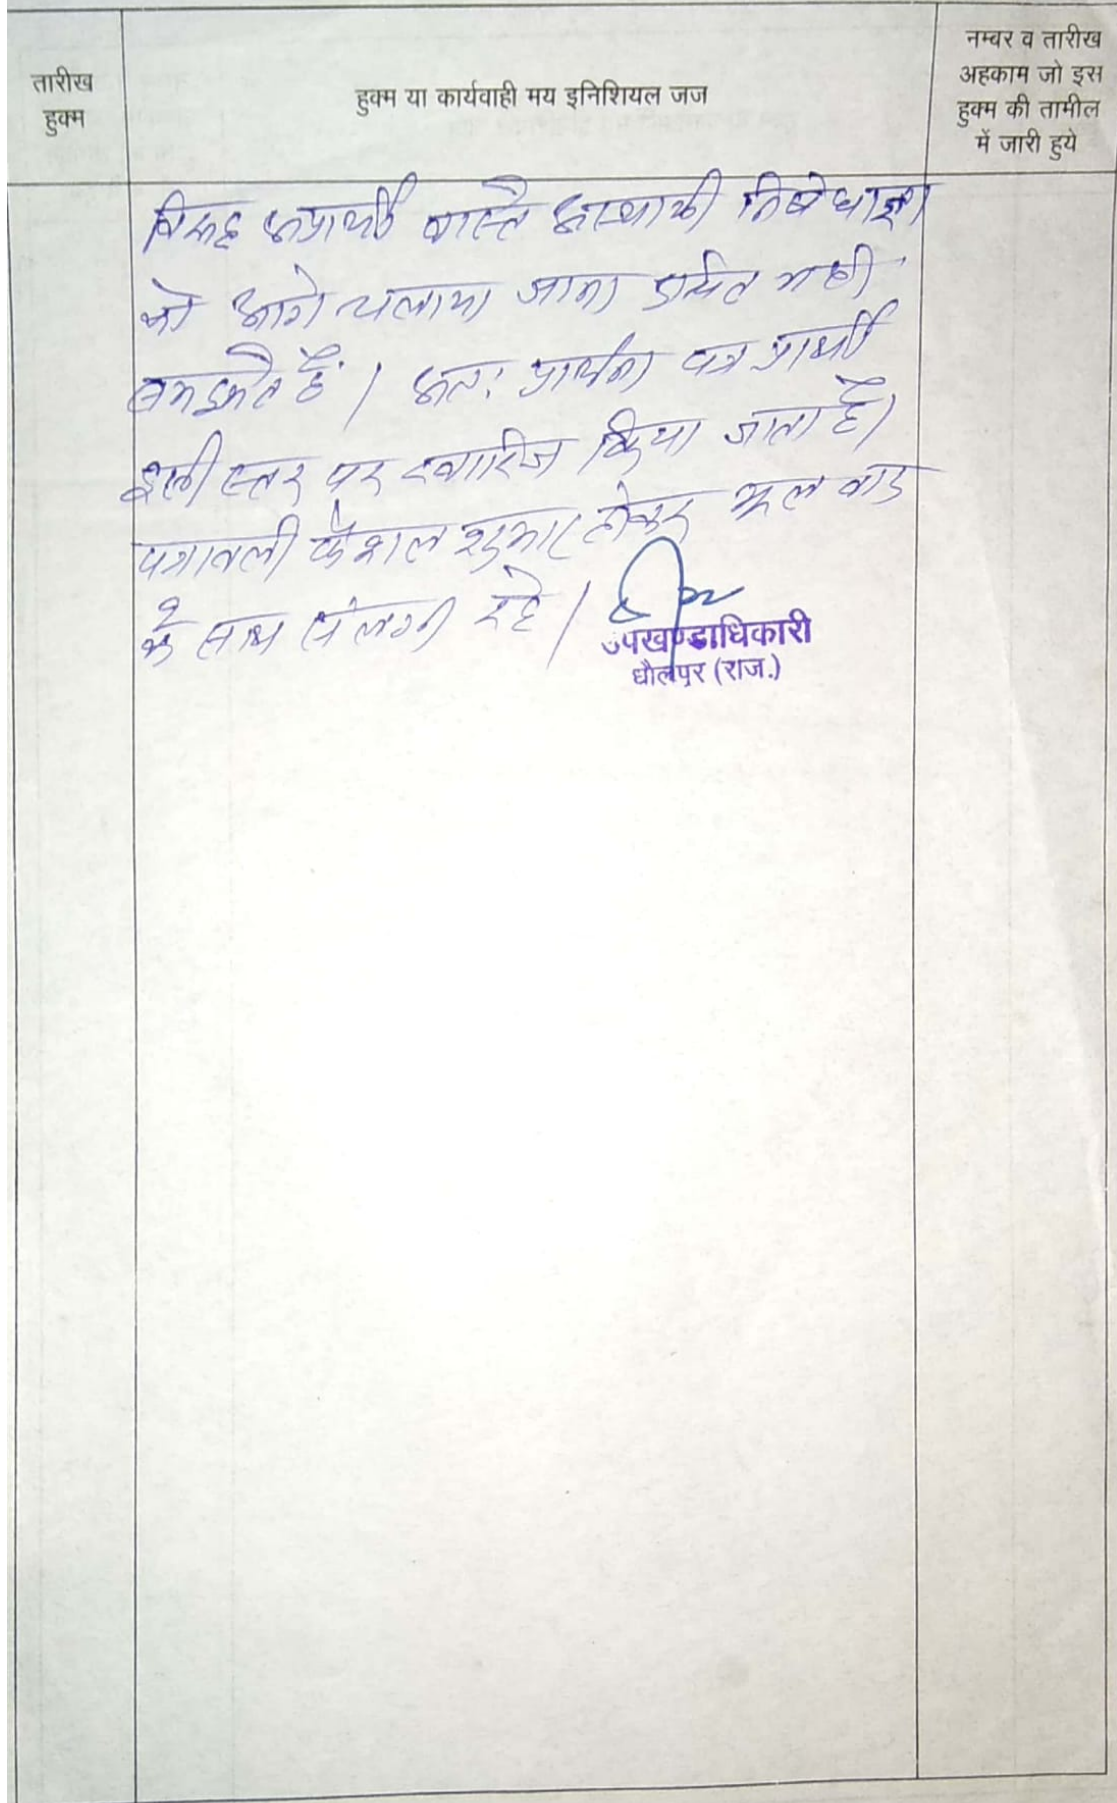 तारीख
हुक्म
हुक्म या कार्यवाही मय इनिशियल जज
नम्बर व तारीख
अहकाम जो इस
हुक्म की तामील
में जारी हुये
विरूद्ध अप्रार्थी वास्ते अस्थायी निषेधाज्ञा
को आगे चलाया जाना उचित नही
समझते है। अतः प्रार्थना पत्र प्रार्थी
इसी स्तर पर खारिज किया जाता है।
पत्रावली फैशल शुमार होकर मूल वाद
के साथ संलग्न रहे।
उपखण्डाधिकारी
धौलपुर (राज.)